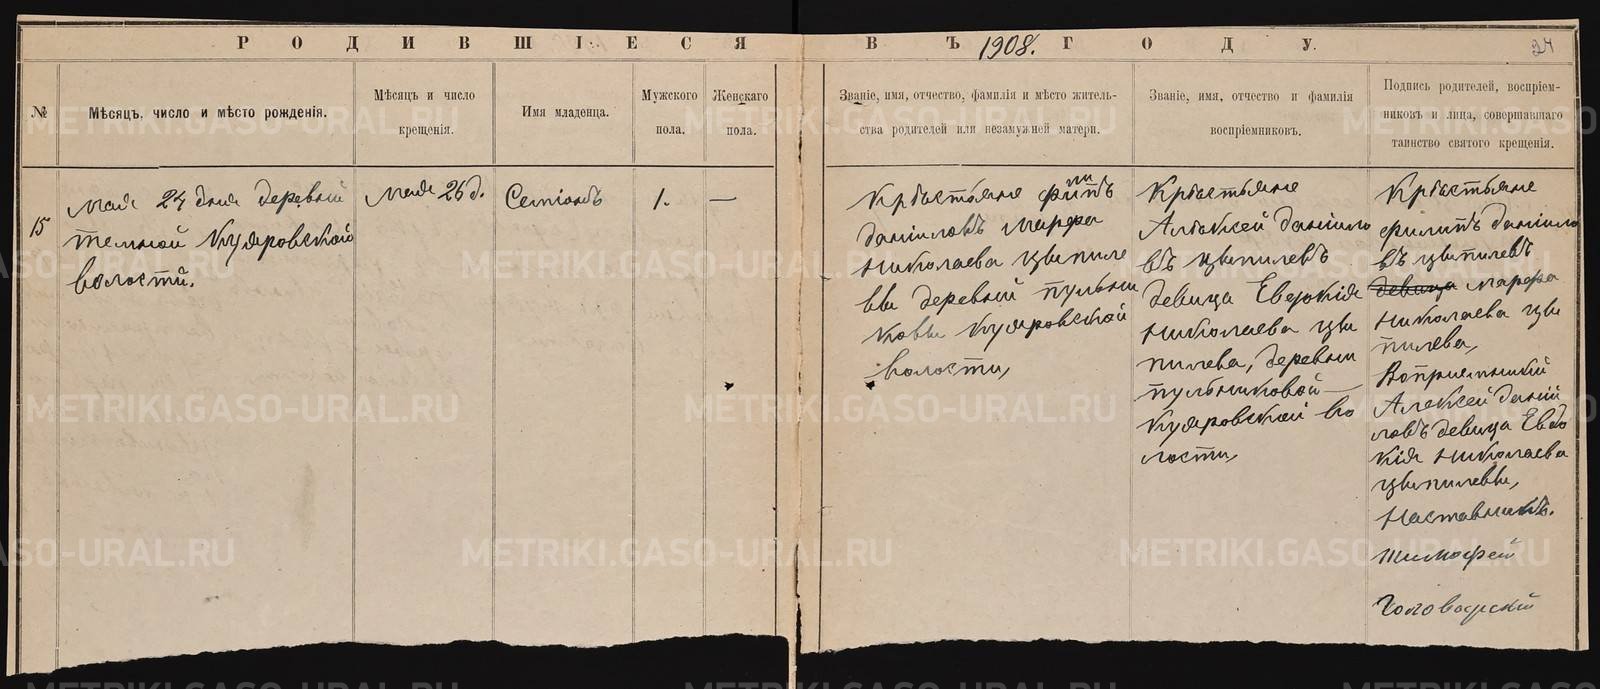 РОДИВШІЕСЯ ВЪ 1908. ГОДУ.
24
№
Мѣсяцъ, число и мѣсто рожденія.
Мѣсяцъ и число
крещенія.
Имя младенца.
Мужского
пола.
Женскаго
пола.
Званіе, имя, отчество, фамилія и мѣсто житель-
ства родителей или незамужней матери.
Званіе, имя, отчество и фамилія
воспріемниковъ.
Подпись родителей, воспріем-
никовъ и лица, совершавшаго
таинство святого крещенія.
15
мая 24 дня деревни
темной Куяровской
волости.
мая 26 д.
Семіонъ
1.
—
Крѣстьяне
Даніиловъ марфа
николаева цыпиле
вы деревни пульни
ковы Куяровской
волости,
Крѣстьяне
Алѣксей даниило
въ цыпилевъ
девица Евдокія
николаева цы
пилева, деревни
пульниковой —
Куяровской во
лости,
Крѣстьяне
филипъ даніило
въ цыпилевъ
девица марфа
николаева цы
пилева,
Воприемники
Алексей даній
ловъ девица Евдо
кія николаева
цыпилевы,
наставникъ.
тимофей
METRIKI.GASO-URAL.RU